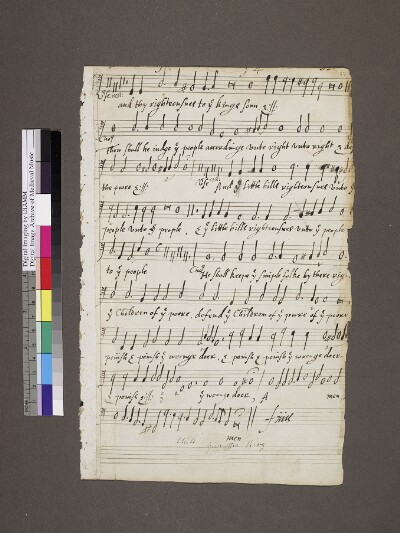 Verse.
and thy righteousnes to yͤ kinges sonn :||:
Cho⁹
then shall he iudge yͤ people accordinge unto right unto right &
the poore :||: Verse And yͤ little hills righteousnes unto yͤ
people unto yͤ people . & yͤ little hills righteousnes unto yͤ people
to yͤ people He shall keepe yͤ simple folke by there rig
yͤ Children of yͤ poore, defend yͤ Children of yͤ poore of yͤ poore
punish & punish yͤ wronge doer, & punish yͤ wronge doer
& punish :||: yͤ wronge doer, A men
men finis
Digital Imaging by DIAMM
Digital Image Archive of Medieval Music